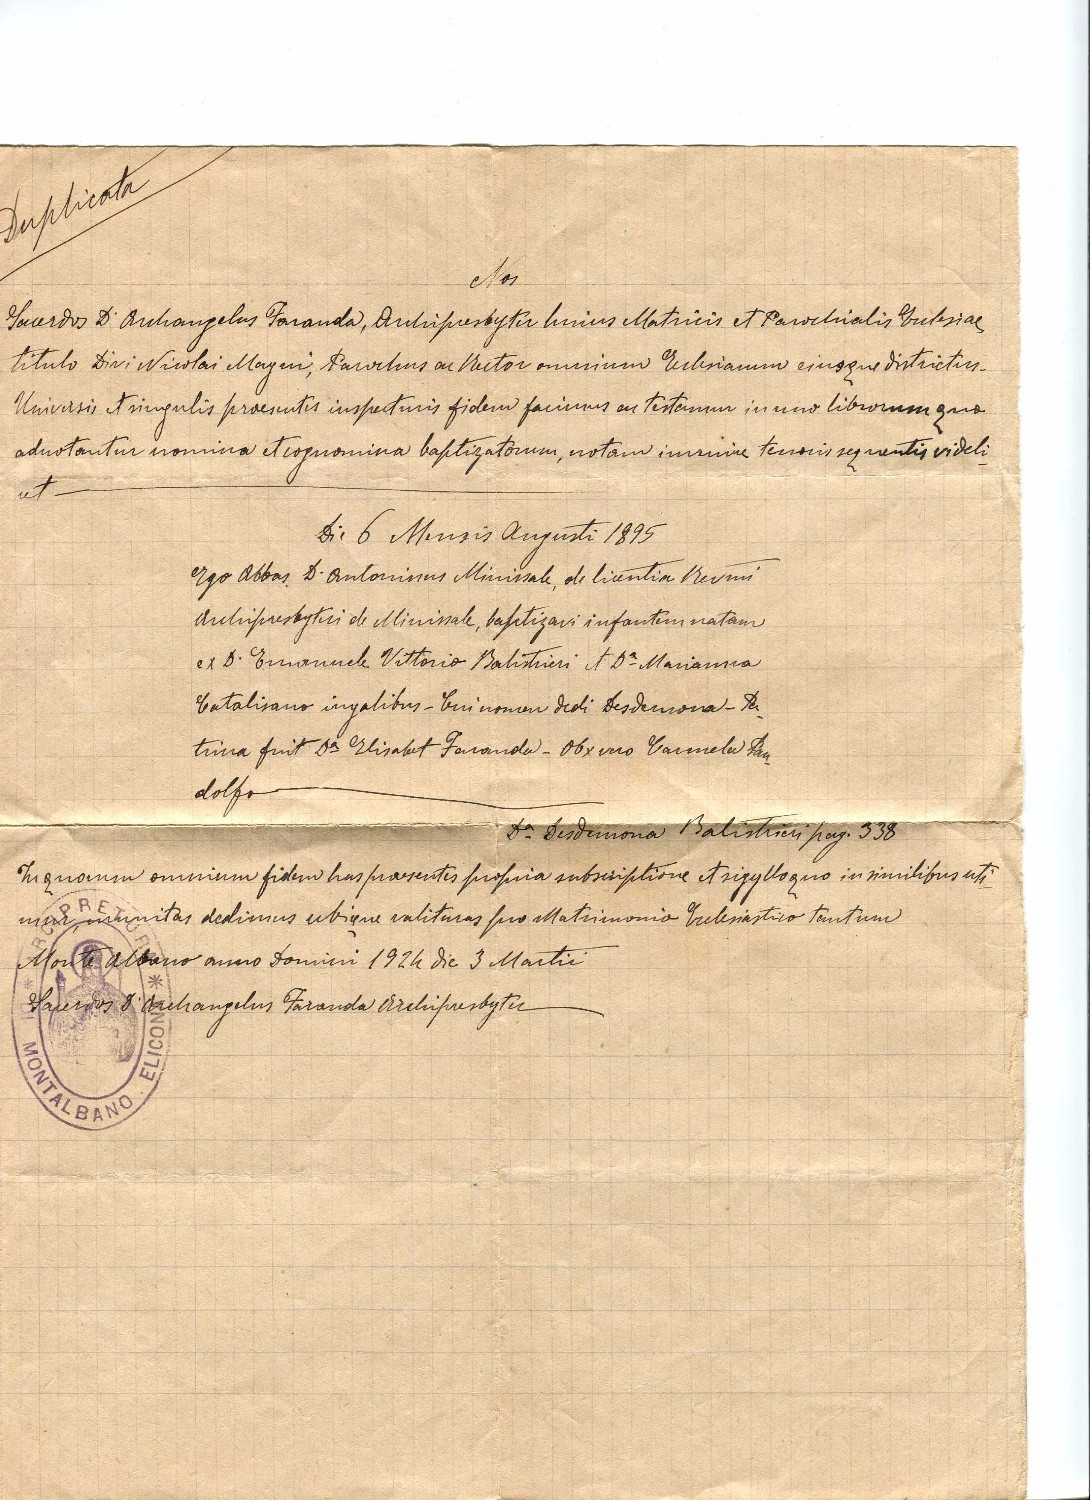 Duplicata
Nos
Sacerdos D. Archangelus Faranda, Archipresbyter huius Matricis et Parochialis Ecclesiae
titulo Divi Nicolai Magni, Parochus ac Rector omnium Ecclesiarum eiusque districtus.
Universis et singulis praesentes inspecturis fidem facimus ac testamur in uno librorum quo
adnotantur nomina et cognomina baptizatorum, notam invenire tenoris sequentis videli-
cet
Die 6 Mensis Augusti 1895
Ego Abbas D. Antoninus Minissale, de licentia Revmi
Archipresbyteri de Minissale, baptizavi infantem natam
ex D. Emanuele Vittorio Balistrieri et Da Marianna
Catalisano iugalibus - Cui nomen dedi Desdemona - Pa-
trina fuit Da Elisabet Faranda - Obx vero Carmela Pan-
dolfo
Da Desdemona Balistrieri pag. 338
In quorum omnium fidem has praesentes propria subscriptione et sigylloquo in similibus uti-
mur, munitas dedimus ubique valituras pro Matrimonio Ecclesiastico tantum
Monte Albano anno Domini 1924 die 3 Martii
Sacerdos D. Archangelus Faranda Archipresbyter
MONTALBANO . ELICONA